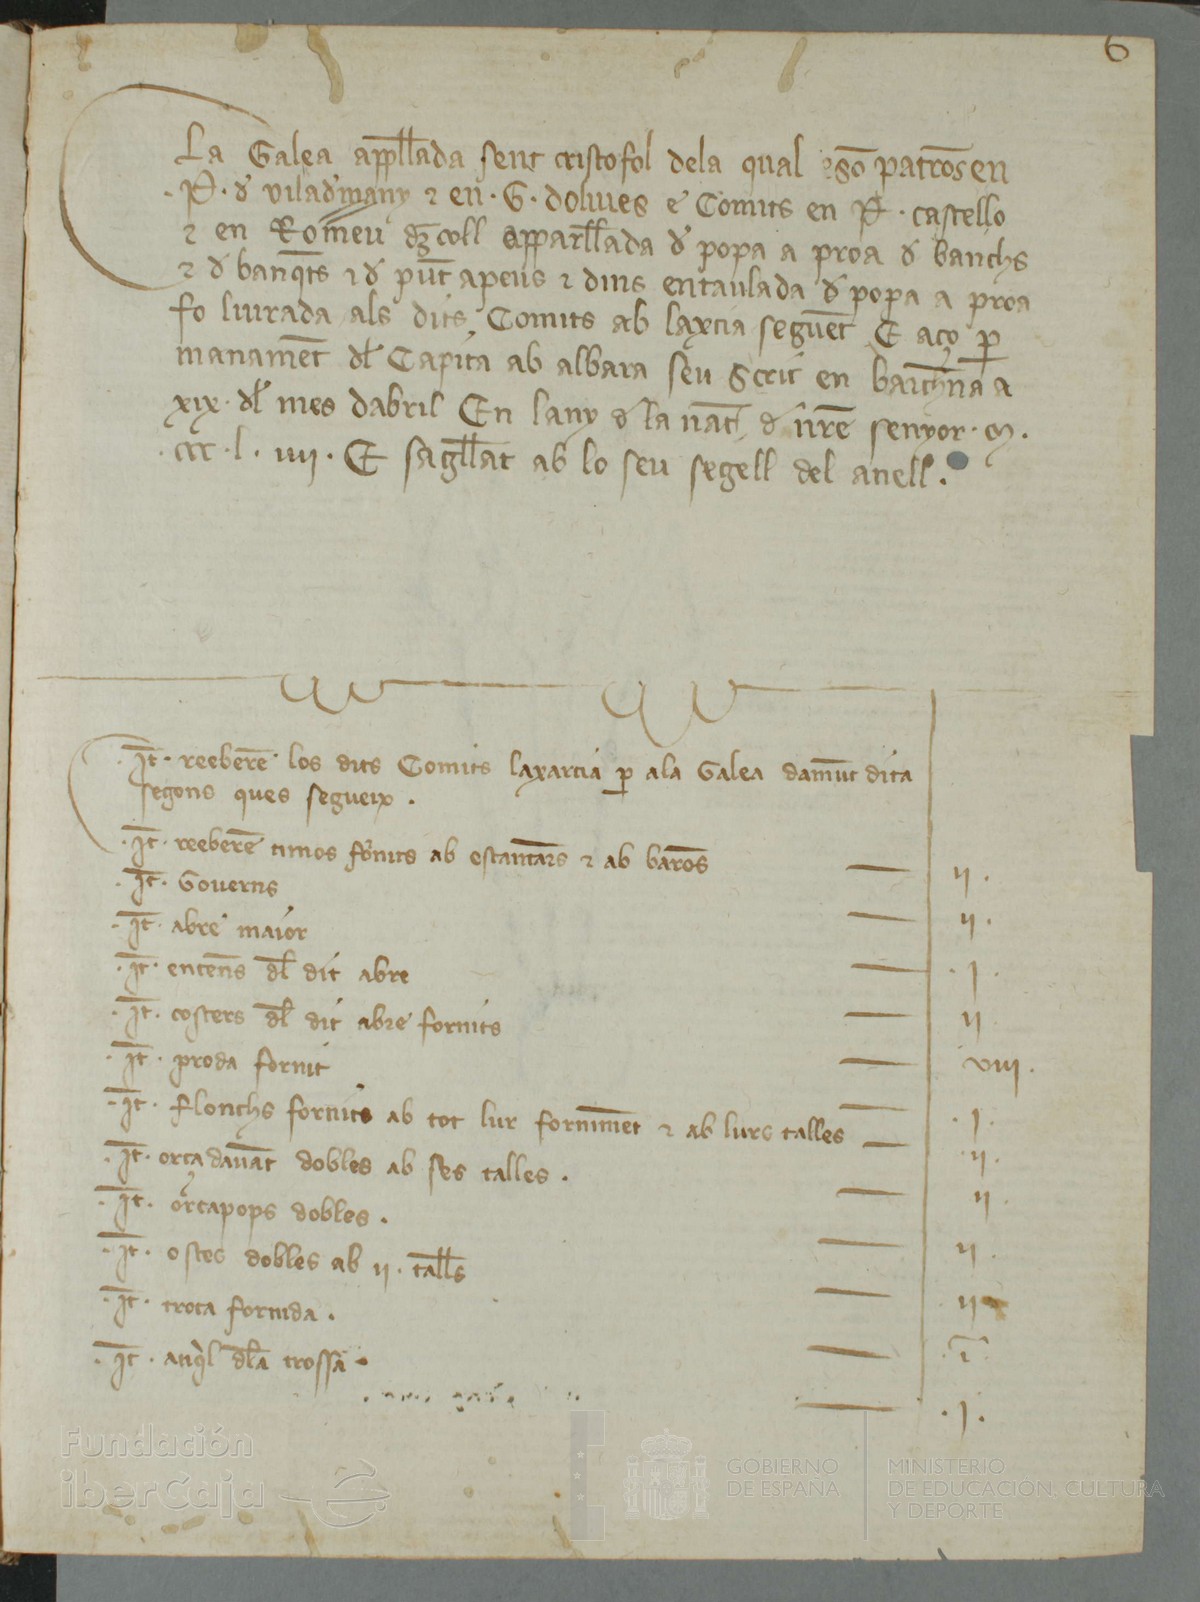 6
La Galea app̄llada sent cristofol dela qual son patrōs en
·P̄· đ vilađmany ⁊ en · G · doliues e Comits en P̄ · castello
⁊ en Romeu coll apparellada đ popa a proa đ banchs
⁊ đ banq̄ts ⁊ đ pūt apeus ⁊ dins entaulada đ popa a proa
fo liurada als dits Comits ab laxcia seguēt E aço p̄
manamēt dl̄ Capita ab albara seu Scrit en barchn̄a a
xix · dl̄ mes dabril En lany đ la nat̄ đ nr̄e senyor · M ·
· ccc · l · iiij · E sagl̄lat ab lo seu segell del anell ·
· It̄ · reeberē los dits Comits laxarcia p̄ ala Galea damūt dita
segons ques segueix ·
· It̄ · reeberē timos fornits ab estantārs ⁊ ab barōs — ij ·
· It̄ · Governs — ij ·
· It̄ · abre maior — · j ·
· It̄ · entēns dl̄ dit abre — ij
· It̄ · costers dl̄ dit abre fornits — viij ·
· It̄ · proda fornit — · j ·
· It̄ · flonchs fornits ab tot lur fornimēt ⁊ ab lurs talles — · ij ·
· It̄ · orca dauāt dobles ab ses talles · — ij ·
· It̄ · orcapops dobles · — ij ·
· It̄ · ostes dobles ab ij · tall̄s — ij
· It̄ · troca fornida · — · i ·
· It̄ · dl̄a trossa · — · j ·
Fundación
iberCaja
GOBIERNO
DE ESPAÑA
MINISTERIO
DE EDUCACIÓN, CULTURA
Y DEPORTE